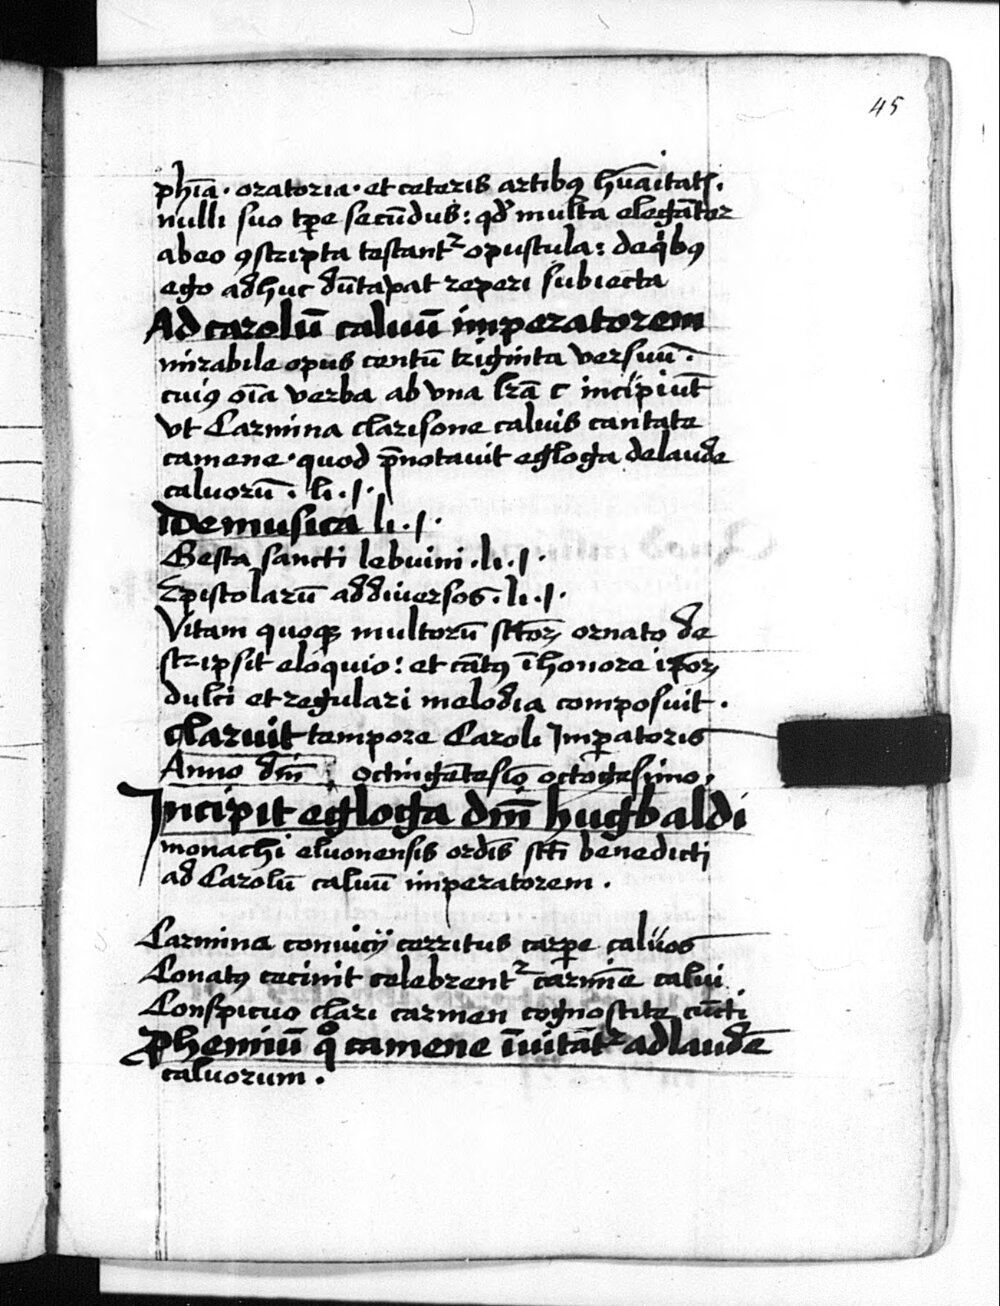 45
phīa · oratoria · et ceteris artibꝯ hūaītatꝭ.
nulli suo tꝑe secūdus : qđ multa elegāter
ab eo ꝯscripta testantᷣ opuscula : de qͥbꝯ
ego adhuc dūtaxat reperi subiecta
Ad carolū caluū imperatorem
mirabile opus centū triginta versuū .
cuiꝯ oīa verba ab vna lr̄a c incipiūt
vt Carmina clarisone caluis cantate
camene · quod p̄notauit egloga de laude
caluorū . li . j .
De musica li . j .
Gesta sancti lebuini . li . j .
Epistolarū ad diuersos . li . j .
Vitam quoqꝫ multorū sctōꝝ ornato de
scripsit eloquio : et cātꝯ ī honore ip̄oꝝ
dulci et regulari melodia composuit .
claruit tempore Caroli Imꝑatoris
Anno dn̄i octingētesīo octogesimo .
Incipit egloga dn̄i hugbaldi
monachi eluonensis ordīs sct̄i benedicti
ad Carolū caluū imperatorem .
Carmina conuicij cerritus carꝑe caluos
Conatꝯ cecinit celebrentᷣ carmīe calui
Conspicuo clari carmen cognoscite cūcti
Phemiū qͦ camene īuitātᷣ ad laudē
caluorum .